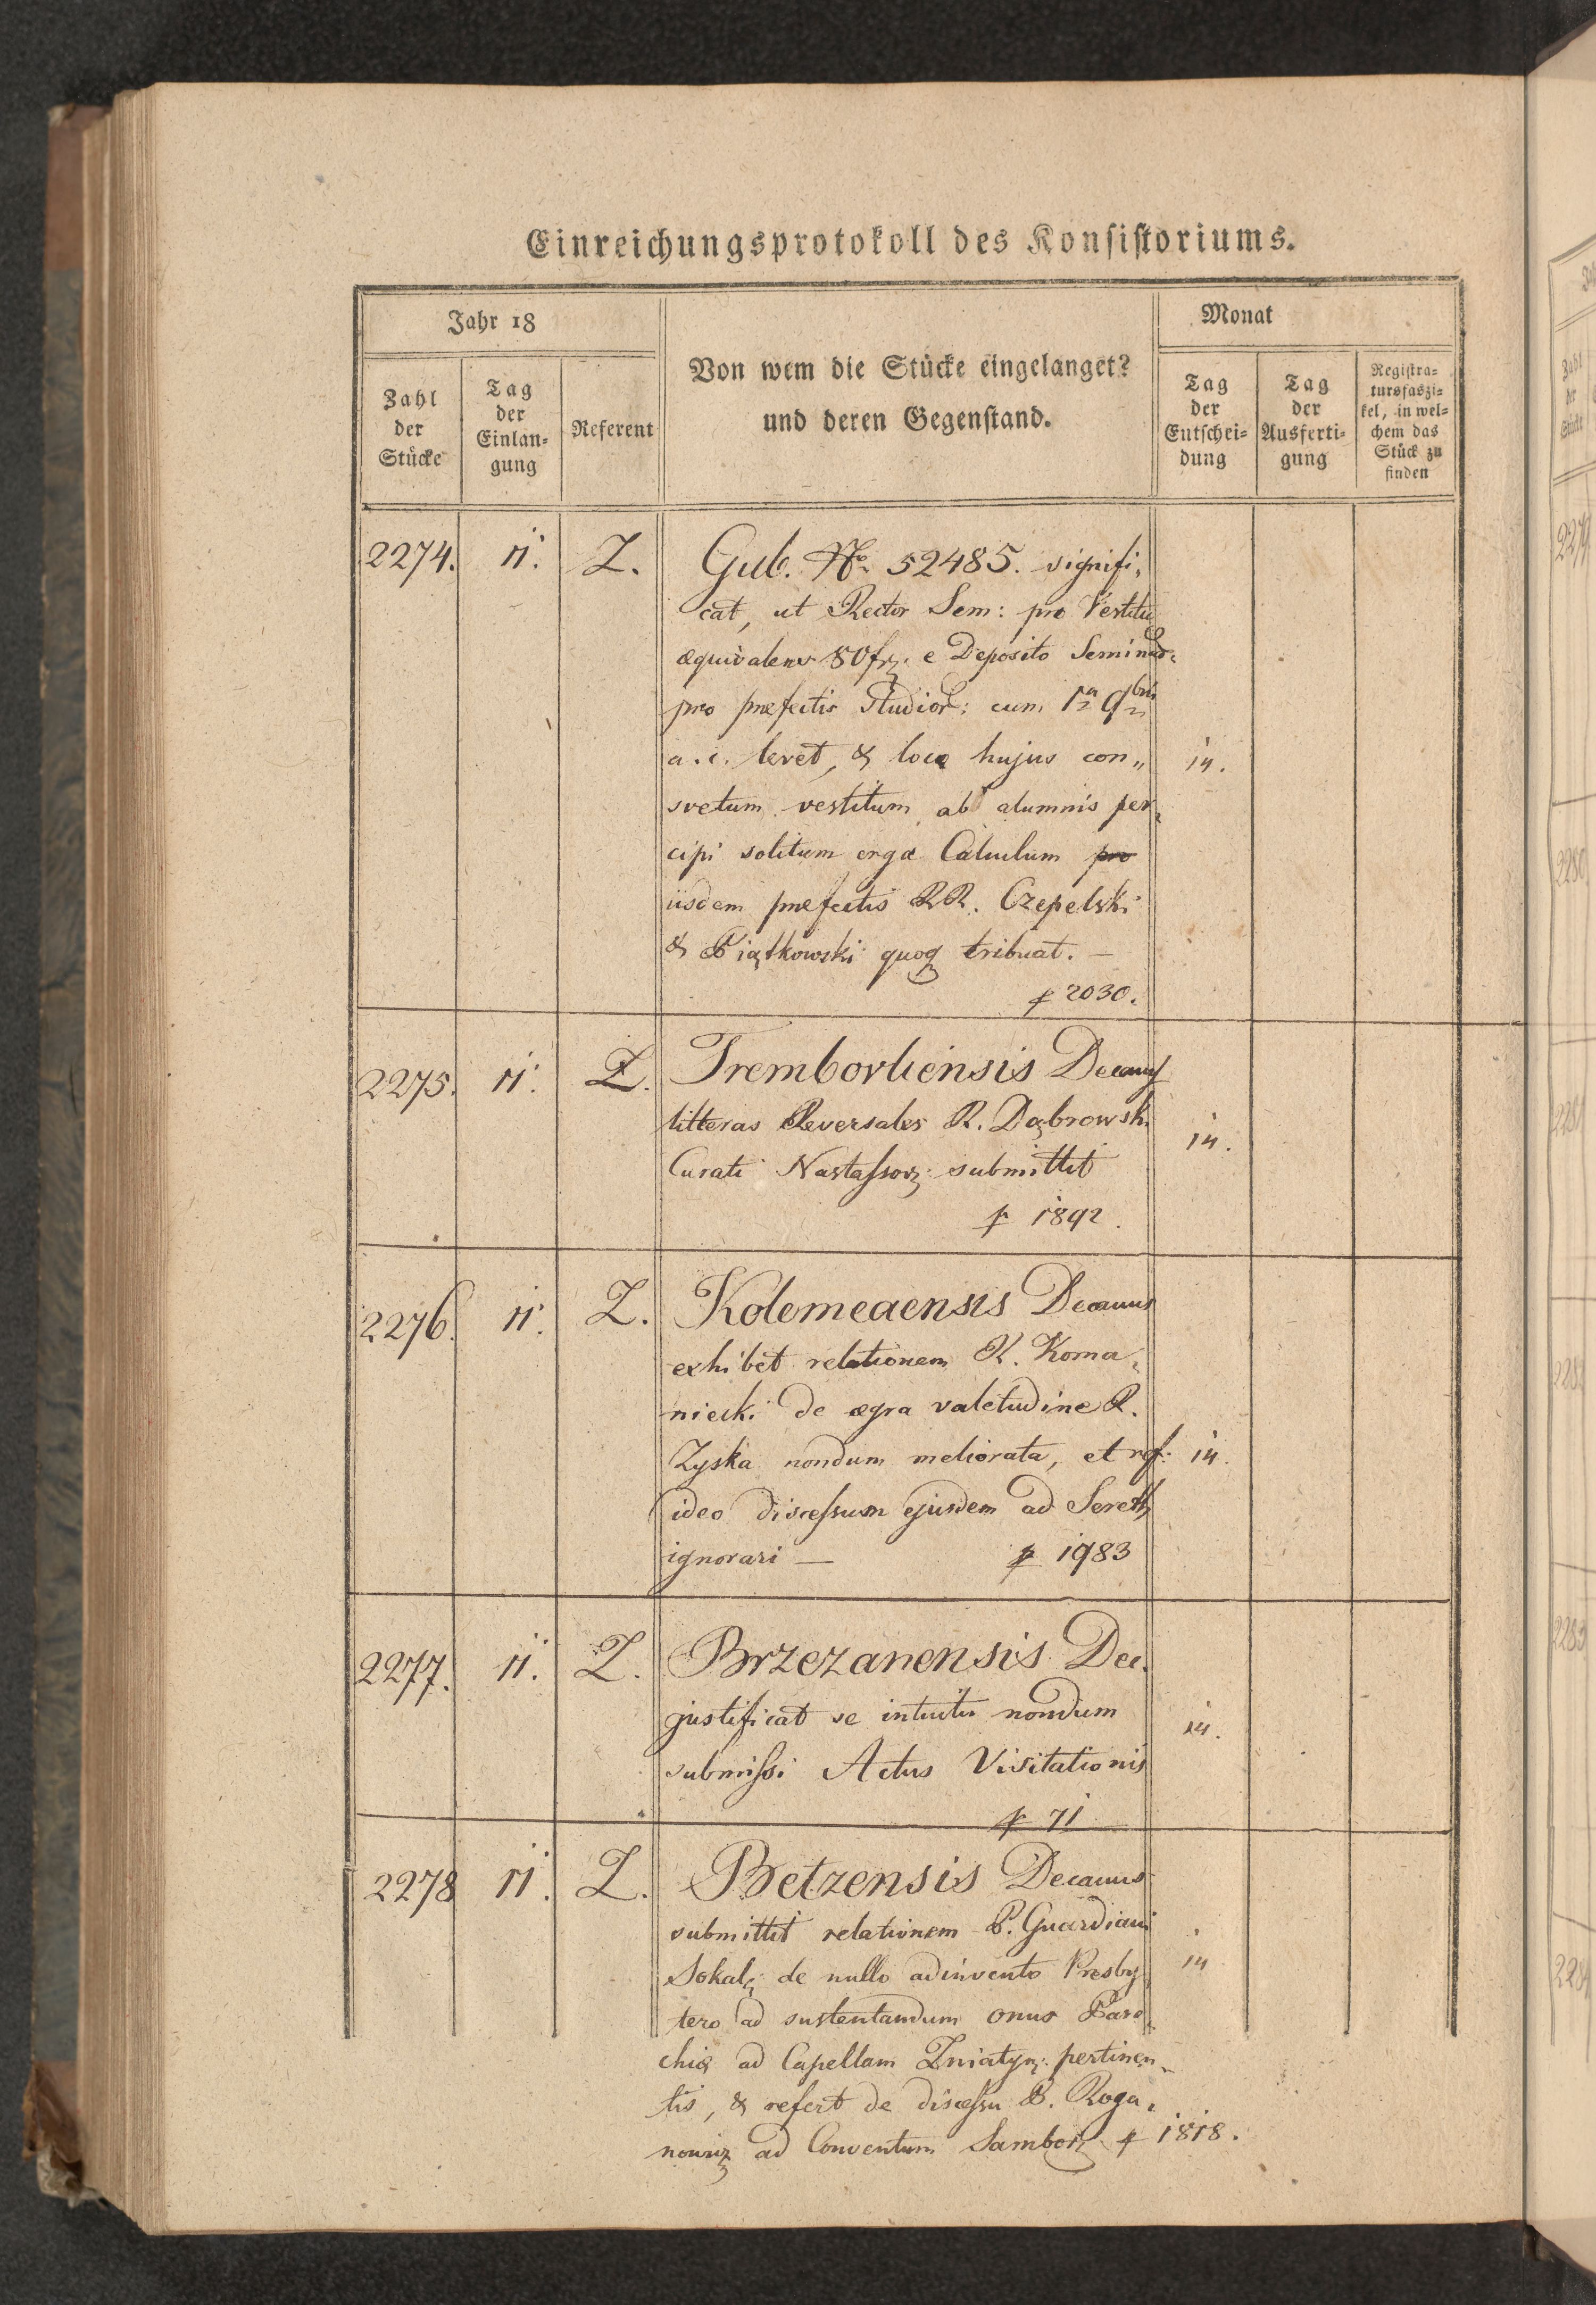 Einreichungsprotokoll des Konsistoriums.
Jahr 18
Monat
Zahl der Stücke
Tag der Einlan-gung
Referent
Von wem die Stücke eingelanget?
und deren Gegenstand.
Tag der Entschei-dung
Tag der Ausferti-gung
Registra-tursfaszi-kel, in wel-chem das Stück zu finden
2274. 11. Z. Gub. No. 52485. signifi,
cat, ut Rector Sem: pro Vestitu
æquivalens 80 frz. e Deposito Seminar:
pro præfectis Studior: cum 1a 9bris
a. c. levet, & loco hujus con„ 14.
svetum vestitum ab alumnis per,
cipi solitum erga Calculum pro
iisdem præfectis RR. Czepelski
& Piątkowski quoq tribuat. —
f 2030.
2275. 11. Z. Trembovliensis Decanus
litteras Reversales R. Dąbrowski 14.
Curati Nastassov: submittit
f 1892.
2276. 11. Z. Kolomeaensis Decanus
exhibet relationem R. Koma,
niecki de ægra valetudine R.
Zyska nondum meliorata, et ref: 14.
ideo discessum ejusdem ad Sereth
ignorari — f 1983
2277. 11. Z. Brzezanensis Dec.
justificat se intuitu nondum 14.
submissi Actus Visitationis
f 71
2278 11. Z. Betzensis Decanus
submittit relationem P. Guardiani
Sokal: de nullo adinvento Presby 14
tero ad sustentandum onus Paro
chiæ ad Capellam Zniatyn: pertinen„
tis, & refert de discessu P. Roga,
nowicz ad Conventum Sambor: f 1818.